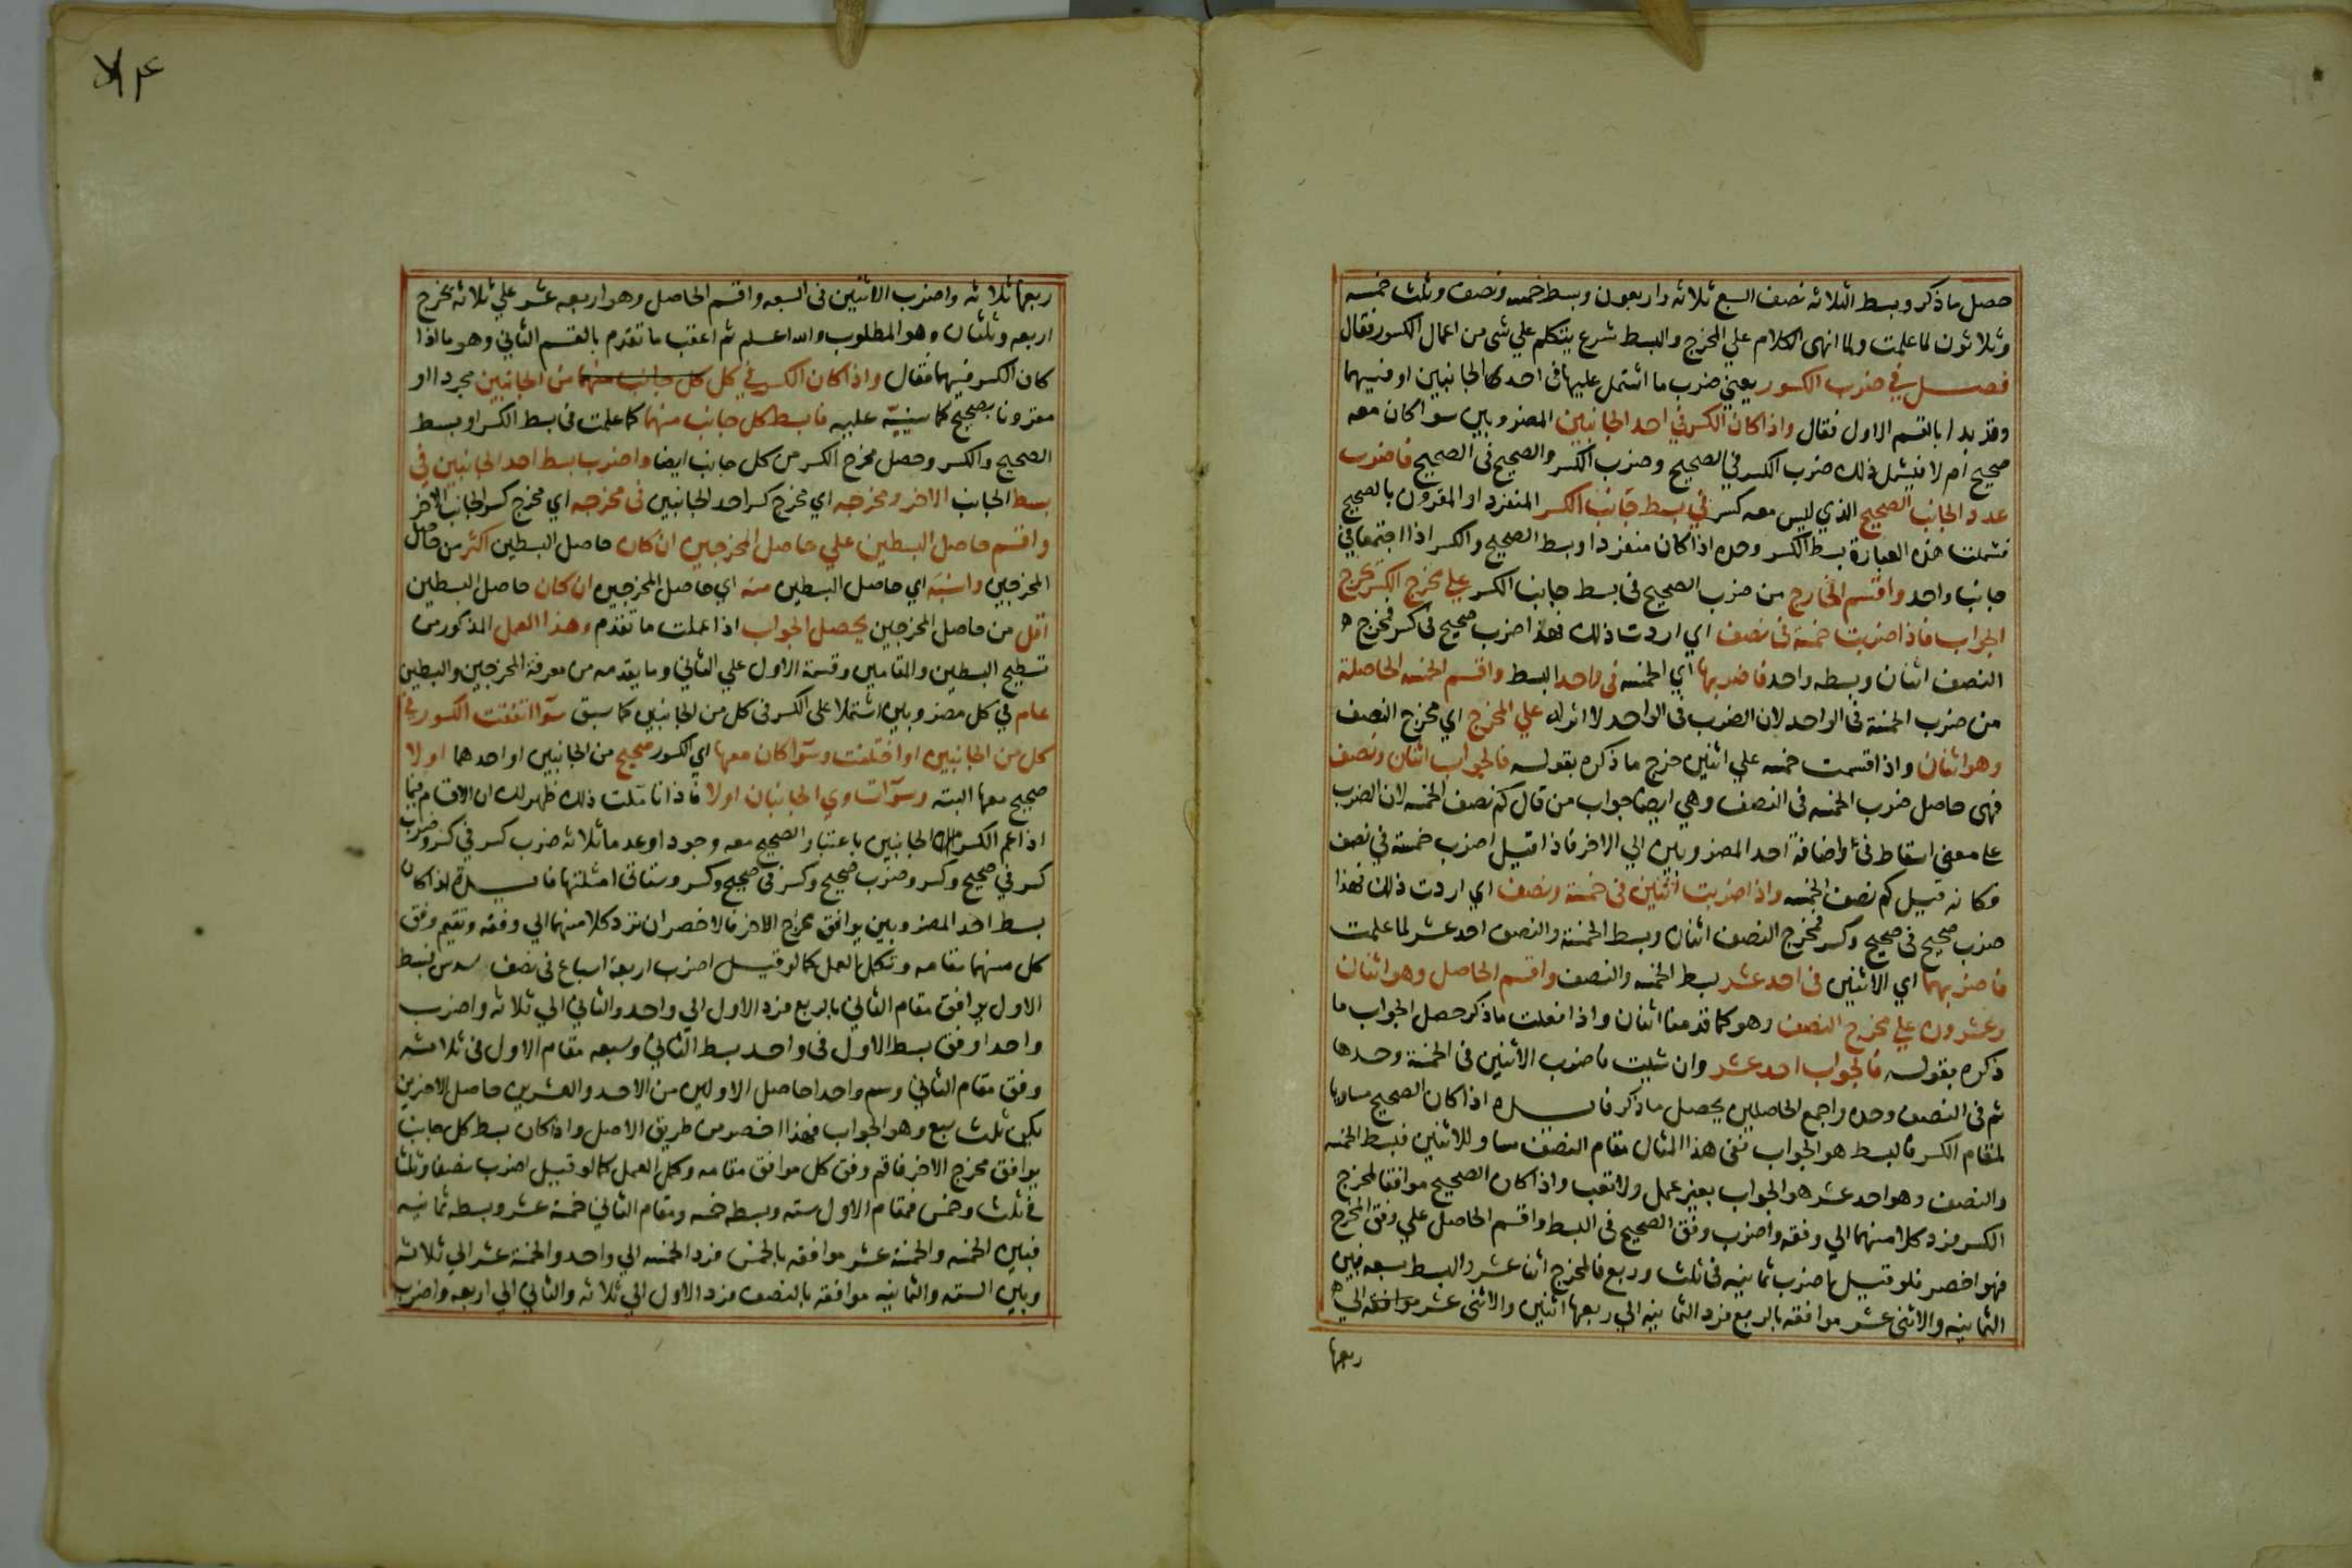 حصل ما ذكر وبسط الثلاثه نصف السبع ثلاثه واربعون وبسط خمسه ونصف وثلث خمسه
وثلاثون لما علمت ولما انهى الكلام علي المخرج والبسط شرع يتكلم علي شى من اعمال الكسور فقال
فصــل في ضرب الكسور يعني ضرب ما اشتمل عليها فى احد كلا الجانبين او فيهما
وقد بدا بالقسم الاول فقال واذا كان الكسر في احد الجانبين المضروبين سوا كان معه
صحيح ام لا فيشمل ذلك ضرب الكسر في الصحيح وضرب الكسر والصحيح فى الصحيح فاضرب
عدد الجانب الصحيح الذي ليس معه كسر في بسط جانب الكسر المنفرد او المقرون بالصحيح
فشملت هذه العبارة بسط الكسر وحده اذا كان منفردا وبسط الصحيح والكسر اذا اجتمعا في
جانب واحد واقسم الخارج من ضرب الصحيح فى بسط جانب الكسر علي مخرج الكسر يخرج
الجواب فاذا ضربت خمسة فى نصف اي اردت ذلك فهذا ضرب صحيح فى كسر فمخرج
النصف اثنان وبسطه واحد فاضربها اي الخمسه فى واحد البسط واقسم الخمسه الحاصلة
من ضرب الخمسة فى الواحد لان الضرب فى الواحد لا اثر له علي المخرج اي مخرج النصف
وهو اثنان واذا قسمت خمسه علي اثنين خرج ما ذكره بقوله فالجواب اثنان ونصف
فهى حاصل ضرب الخمسه فى النصف وهي ايضا جواب من قال كم نصف الخمسه لان الضرب
على معنى اسقاط فى واضافة احد المضروبين الي الاخر فاذا قيل اضرب خمسة في نصف
فكانه قيل كم نصف الخمسه واذا ضربت اثنين فى خمسة ونصف اي اردت ذلك فهذا
ضرب صحيح فى صحيح وكسر فمخرج النصف اثنان وبسط الخمسة والنصف احد عشر لما علمت
فاضربهما اي الاثنين فى احد عشر بسط الخمسه والنصف واقسم الحاصل وهو اثنان
وعشرون علي مخرج النصف وهو كما قدمنا اثنان واذا فعلت ما ذكر حصل الجواب ما
ذكره بقوله فالجواب احد عشر وان شيت فاضرب الاثنين فى الخمسة وحدها
ثم فى النصف وحده واجمع الحاصلين يحصل ما ذكر فايــده اذا كان الصحيح مساويا
لمقام الكسر فالبسط هو الجواب ففى هذا المثال مقام النصف مساو للاثنين فبسط الخمسه
والنصف وهو احد عشر هو الجواب بغير عمل ولا تعب واذا كان الصحيح موافقا لمخرج
الكسر فرد كلا منهما الي وفقه واضرب وفق الصحيح فى البسط واقسم الحاصل علي وفق المخرج
فهو اخصر فلو قيل اضرب ثمانيه فى ثلث وربع فالمخرج اثنا عشر والبسط سبعه فبين
الثمانيه والاثنى عشر موافقه بالربع فرد الثمانيه الي ربعها اثنين والاثنى عشر موافقه الي
ربعها
ربعها ثلاثه واضرب الاثنين فى السبعه واقسم الحاصل وهو اربعه عشر علي ثلاثه يخرج
اربعه وثلثان وهو المطلوب والله اعلم ثم اعقب ما تقدم بالقسم الثاني وهو ما اذا
كان الكسر فيهما فقال واذا كان الكسر في كل كل جانب منهما من الجانبين مجردا او
مقرونا بصحيح كما سينبه عليه فابسط كل جانب منهما كما علمت فى بسط الكسر او بسط
الصحيح والكسر وحصل مخرج الكسر من كل جانب ايضا واضرب بسط احد الجانبين فى
بسط الجانب الاخر ومخرجه اي مخرج كسر احد الجانبين فى مخرجه اي مخرج كسر الجانب الاخر
واقسم حاصل البسطين علي حاصل المخرجين ان كان حاصل البسطين اكثر من حاصل
المخرجين وانسبه اي حاصل البسطين منه اي حاصل المخرجين ان كان حاصل البسطين
اقل من حاصل المخرجين يحصل الجواب اذا عملت ما تقدم وهذا العمل المذكور من
تسطيح البسطين والمقامين وقسمة الاول علي الثاني وما يقدمه من معرفة المخرجين والبسطين
عام في كل مضروبين اشتملا على الكسر فى كل من الجانبين كما سبق سوآ اتفقت الكسور في
كل من الجانبين او اختلفت وسوآ كان معها اي الكسور صحيح من الجانبين او احدهما او لا
صحيح معها البته وسوآ تساوي الجانبان او لا فاذا تاملت ذلك ظهر لك ان الاقسام فيما
اذا عم الكسر الجانبين باعتبار الصحيح معه وجودا وعدما ثلاثه ضرب كسر في كسر وضرب
كسر في صحيح وكسر وضرب صحيح وكسر فى صحيح وكسر وستاتى امثلتها فايــدة اذا كان
بسط احد المضروبين يوافق مخرج الاخر فالاخصر ان ترد كلا منهما الي وفقه وتقيم وفق
كل منهما مقامه وتكمل العمل كما لو قيل اضرب اربعة اسباع فى نصف سدس فبسط
الاول يوافق مقام الثاني بالربع فرد الاول الي واحد والثاني الي ثلاثه واضرب
واحدا وفق بسط الاول فى واحد بسط الثاني وسبعه مقام الاول فى ثلاثه
وفق مقام الثاني وسم واحدا حاصل الاولين من الاحد والعشرين حاصل الاخرين
يكن ثلث سبع وهو الجواب فهذا اخصر من طريق الاصل واذا كان بسط كل جانب
يوافق مخرج الاخر فاقم وفق كل موافق مقامه وكمل العمل كما لو قيل اضرب نصفا وثلثا
في ثلث وخمس فمقام الاول سته وبسطه خمسه ومقام الثاني خمسة عشر وبسطه ثمانيه
فبين الخمسه والخمسة عشر موافقه بالخمس فرد الخمسه الي واحد والخمسة عشر الي ثلاثه
وبين السته والثمانيه موافقه بالنصف فرد الاول الي ثلاثه والثاني الي اربعه واضرب